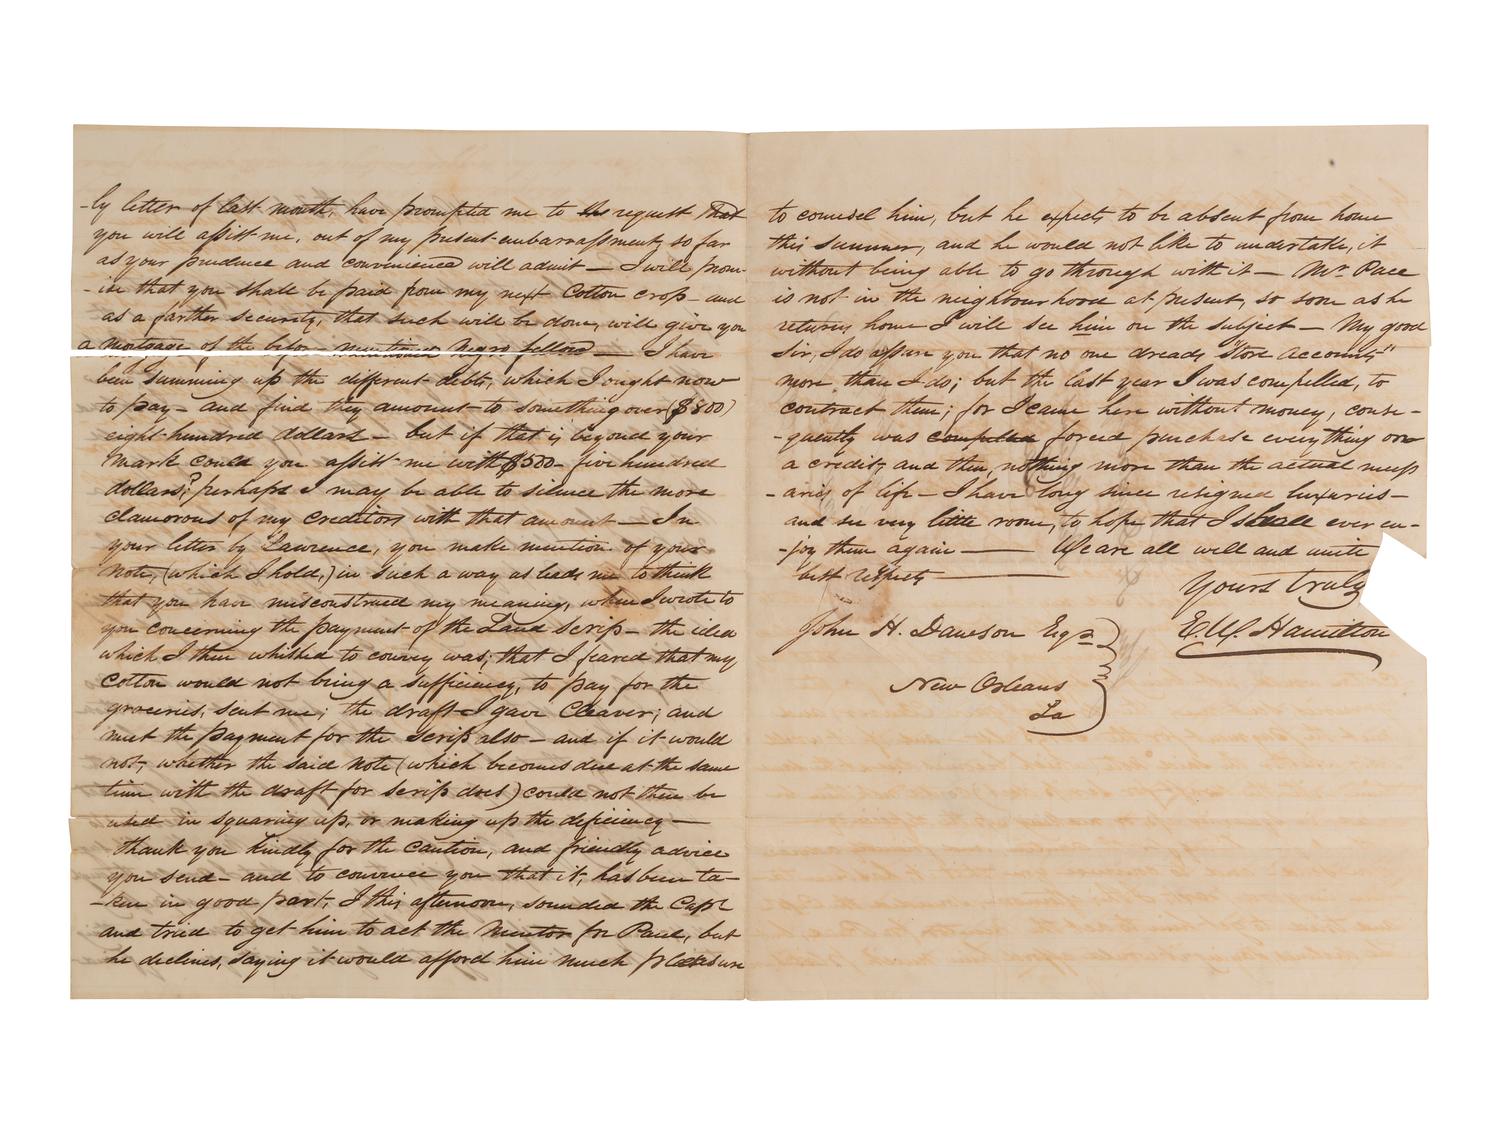 -ly letter of last month, have prompted me to request that
you will assist me, out of my present embarrassment, so far
as your prudence and convenience will admit — I will prom-
-ise that you shall be paid from my next Cotton crop — and
as a farther security, that such will be done, will give you
a mortgage of the before mentioned Negro fellow — I have
been summing up the different debts, which I ought now
to pay — and find they amount to something over ($800)
eight hundred dollars — but if that is beyond your
mark could you assist me with $500 — five hundred
dollars? perhaps I may be able to silence the more
clamorous of my Creditors with that amount — In
your letter by Lawrence, you make mention of your
note, (which I hold,) in such a way as leads me to think
that you have misconstrued my meaning, when I wrote to
you concerning the payment of the Land Scrip — the idea
which I then whished to convey was, that I feared that my
Cotton would not bring a sufficiency, to pay for the
groceries, sent me; the draft I gave Cleaver; and
meet the payment for the Scrip also — and if it would
not, whether the said note (which becomes due at the same
time with the draft for scrip does) could not then be
used in squaring up, or making up the deficiency —
thank you kindly for the caution, and friendly advice
you send — and to convince you that it, has been ta-
-ken in good part, I this afternoon, sounded the Capt
and tried to get him to act the Mentor for Paul, but
he declines, saying it would afford him much pleasure
to counsel him, but he expects to be absent from home
this summer, and he would not like to undertake, it
without being able to go through with it — Mr. Pace
is not in the neighbourhood at present, so soon as he
returns home I will see him on the subject — My good
Sir, I do assure you that no one dreads "Store Accounts"
more than I do; but the last year I was compelled, to
contract them; for I came here without money, conse-
-quently was compelled forced purchase everything on
a credit, and then, nothing more than the actual necess
-aries of life — I have long since resigned luxuries —
and see very little room, to hope that I shall ever en-
-joy them again — We are all well and unite
best respects —
Yours truly
E. W. Hamilton
John H. Dawson Esqr
New Orleans
La